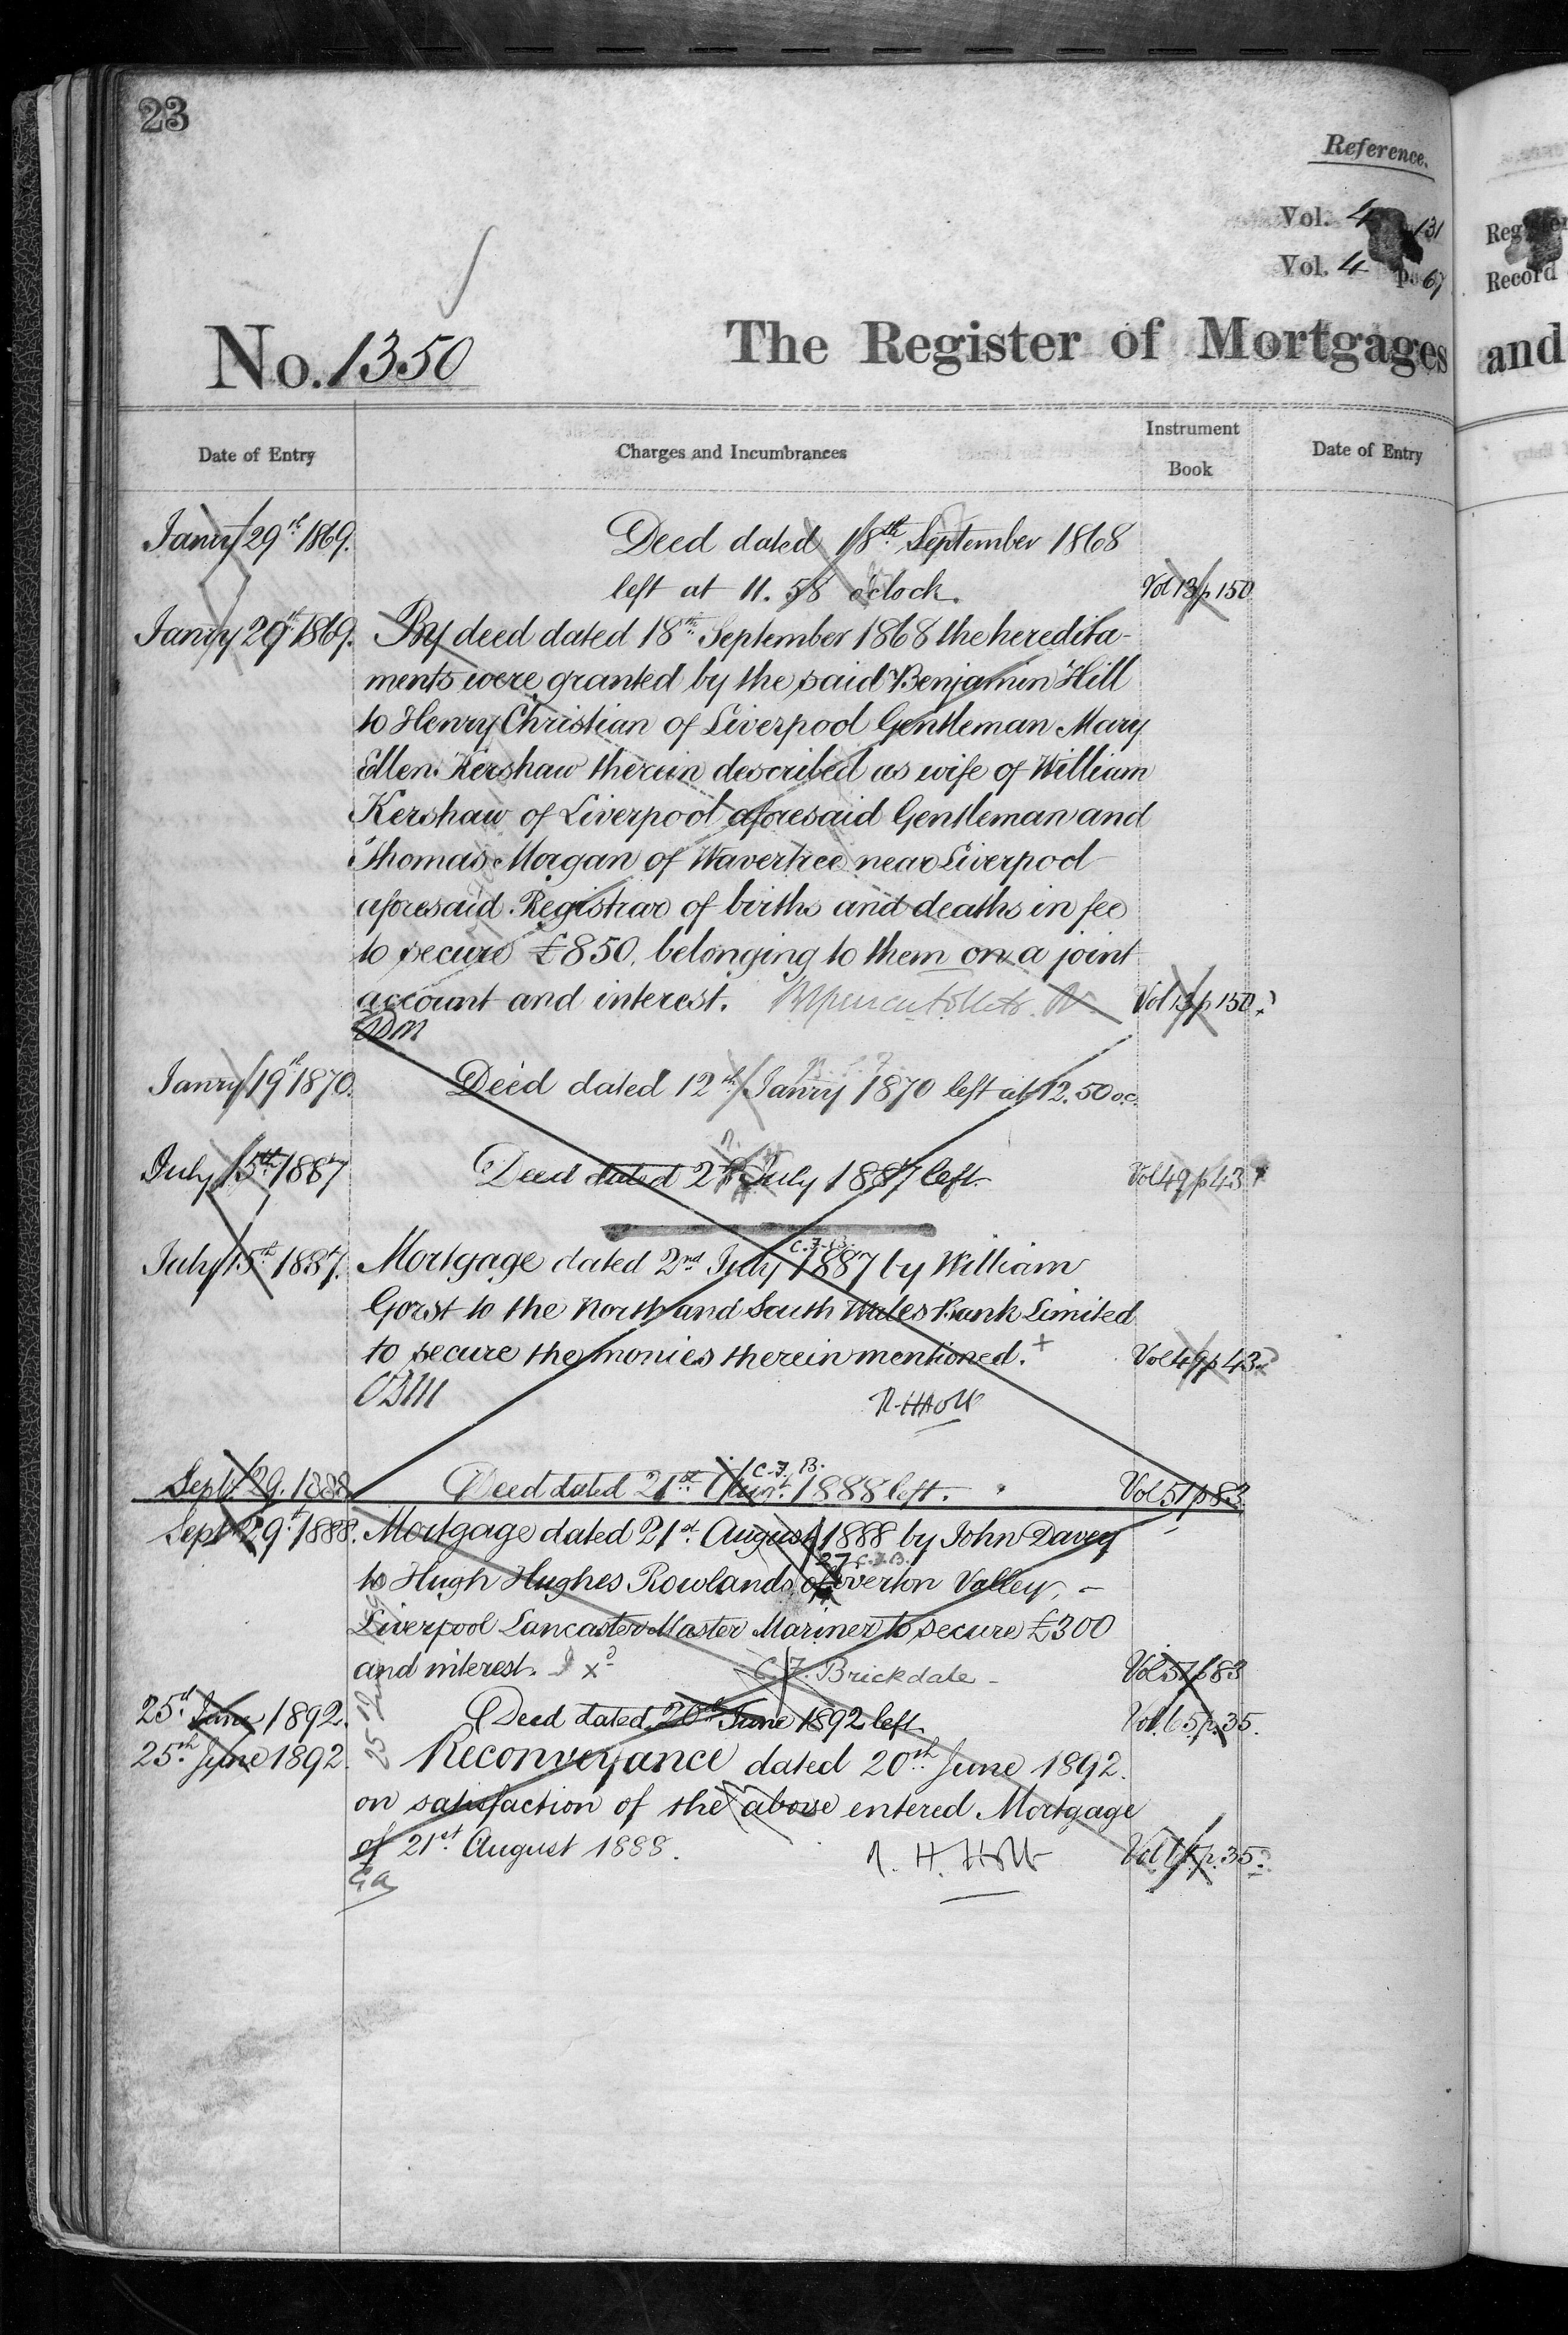 23
Reference.
Vol. 4 131
Vol. 4 67
No. 1350
The Register of Mortgages
and
Record
Date of Entry
Charges and Incumbrances
Instrument Book
Date of Entry
Janry 29th 1869. Deed dated 18th September 1868
left at 11.58 oclock. Vol 13 p 150
Janry 29th 1869. By deed dated 18th September 1868 the heredita-
ments were granted by the said Benjamin Hill
to Henry Christian of Liverpool Gentleman Mary
Ellen Kershaw therein described as wife of William
Kershaw of Liverpool aforesaid Gentleman and
Thomas Morgan of Wavertree near Liverpool
aforesaid Registrar of births and deaths in fee
to secure £850, belonging to them on a joint
account and interest. Vol 13 p 150
Janry 19th 1870. Deed dated 12th Janry 1870 left at 12.50 o.c.
July 15th 1887 Deed dated 2nd July 1887 left. Vol 49 p 43
C.F.B.
July 15th 1887. Mortgage dated 2nd July 1887 by William
Gorst to the North and South Wales Bank Limited
to secure the monies therein mentioned. + Vol 49 p 43
R. H. Holt
C.F.B.
Sept 29. 1888 Deed dated 21st Augt. 1888 left. Vol 51 p 83
Sept 29th 1888. Mortgage dated 21st August 1888 by John Davey
27 C.F.B.
to Hugh Hughes Rowlands of Overton Valley, -
Liverpool Lancaster Master Mariner to secure £300
and interest. C.F. Brickdale - Vol 51 p 83
25th June 1892. Deed dated 20th June 1892 left Vol. 65 p. 35.
25th June 1892 Reconveyance dated 20th June 1892.
on satisfaction of the above entered Mortgage
of 21st August 1888. R. H. Holt Vol 65 p. 35.